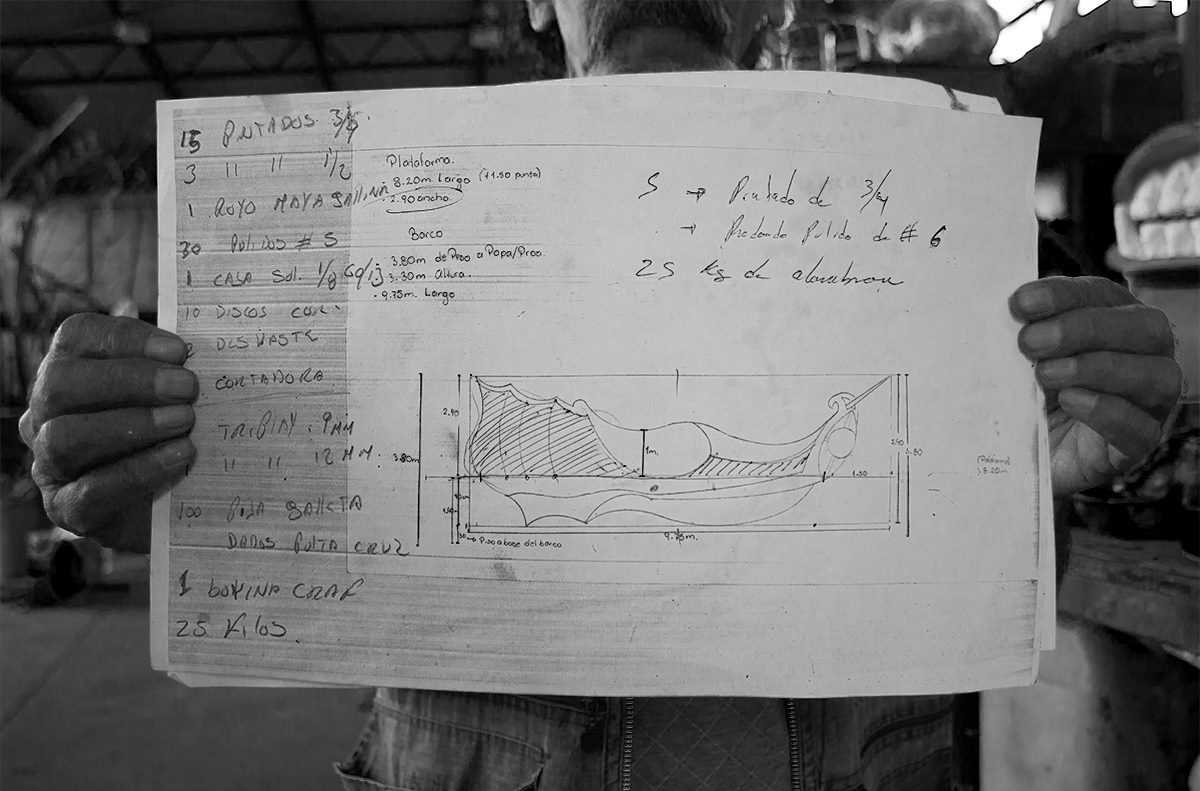 15 PINTADOS 3/4.
3 " " 1/2
1 ROYO MAYA GALLINA
30 PULIDOS # 5
1 CASA SOL. 1/8
10 DISCOS COR
2 DESVASTE
CORTADORA
TRIPLAY. 9MM
1 " " 12 MM.
100 PIJA GALLETA
DADOS PUNTA CRUZ
1 BOVINA CRAF
25 Kilos.
Plataforma.
- 8.20m Largo (11.50 punta)
- 2.90 ancho.
Barco
- 3.80m de Piso a Popa/Proa.
- 3.30m Altura.
- 9.75m. Largo
5 → Pintado de 3/4
→ Redondo Pulido de # 6
25 Kg de alambron
2.90
3.80m
1m.
2.90
3.80
1.50
(Plataforma)
8.20m
→ Piso a base del barco
9.75m.